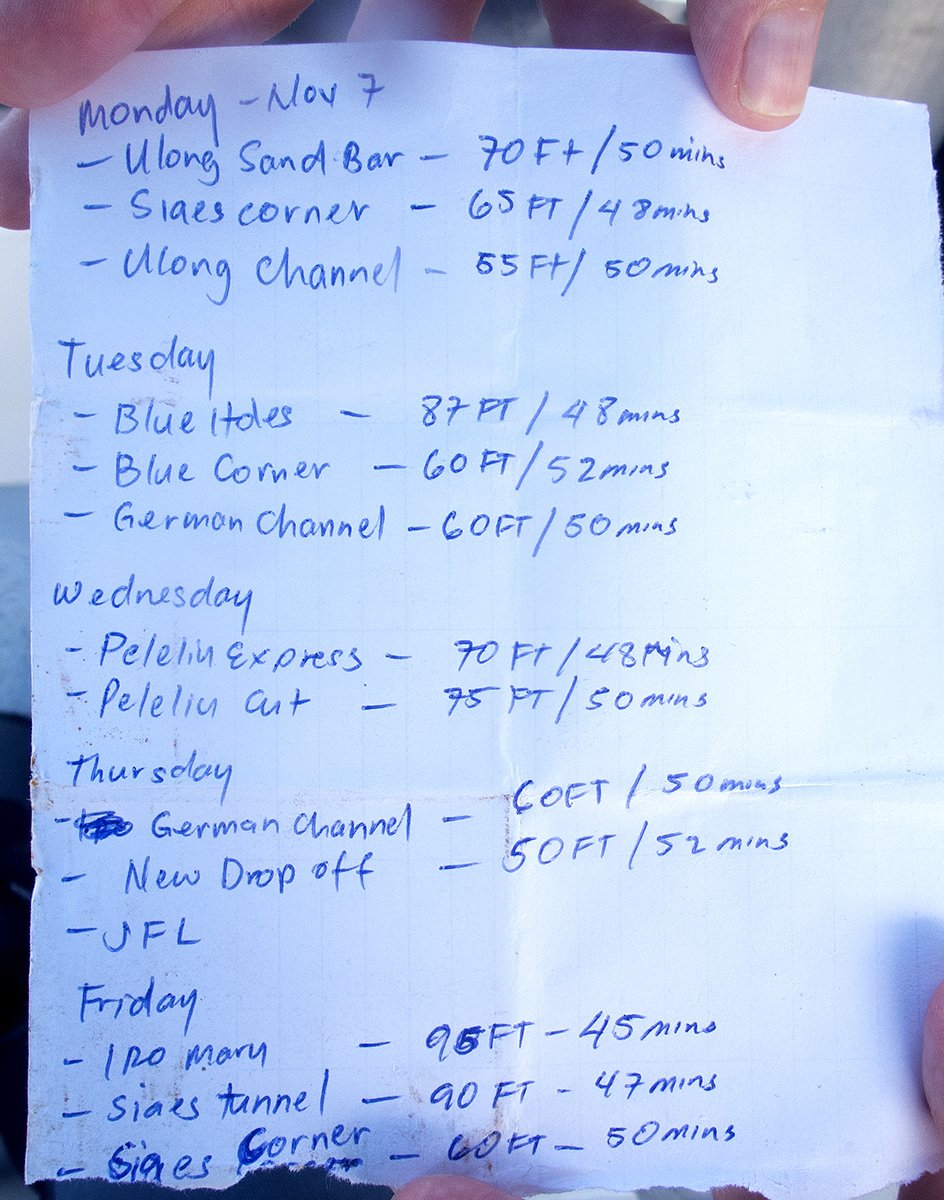 Monday - Nov 7
- Ulong Sand Bar - 70Ft/50mins
- Siaes corner - 65FT/48mins
- Ulong Channel - 55Ft/50mins
Tuesday
- Blue Holes - 87FT/48mins
- Blue Corner - 60FT/52mins
- German Channel - 60FT/50mins
Wednesday
- Peleliu Express - 70Ft/48Mins
- Peleliu Cut - 75FT/50mins
Thursday
- German Channel - 60FT/50mins
- New Drop off - 50FT/52mins
- JFL
Friday
- IRO Maru - 95FT - 45mins
- Siaes tunnel - 90FT - 47mins
- Siaes Corner - 60FT - 50mins